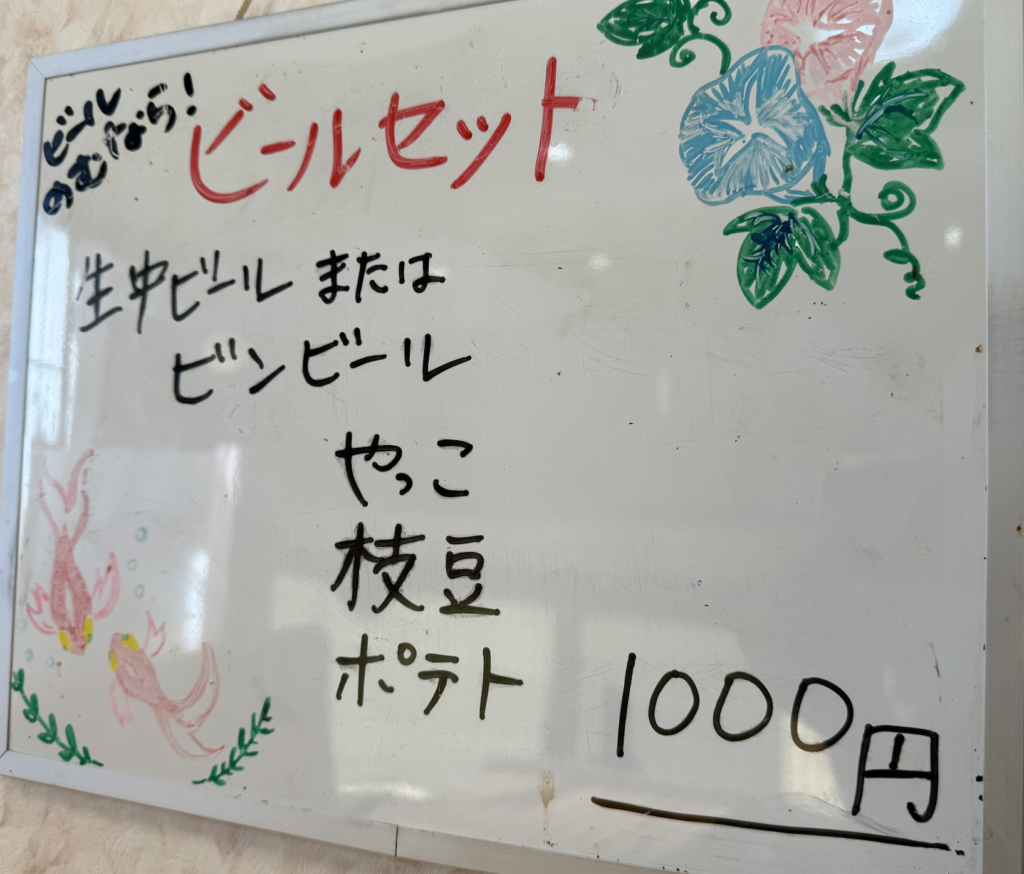 ビール
のむなら!
ビールセット
生中ビール または
ビンビール
やっこ
枝豆
ポテト
1000円